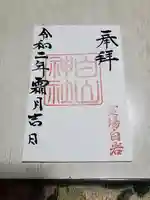 奉拝
白山
神社
令和二年霜月吉日